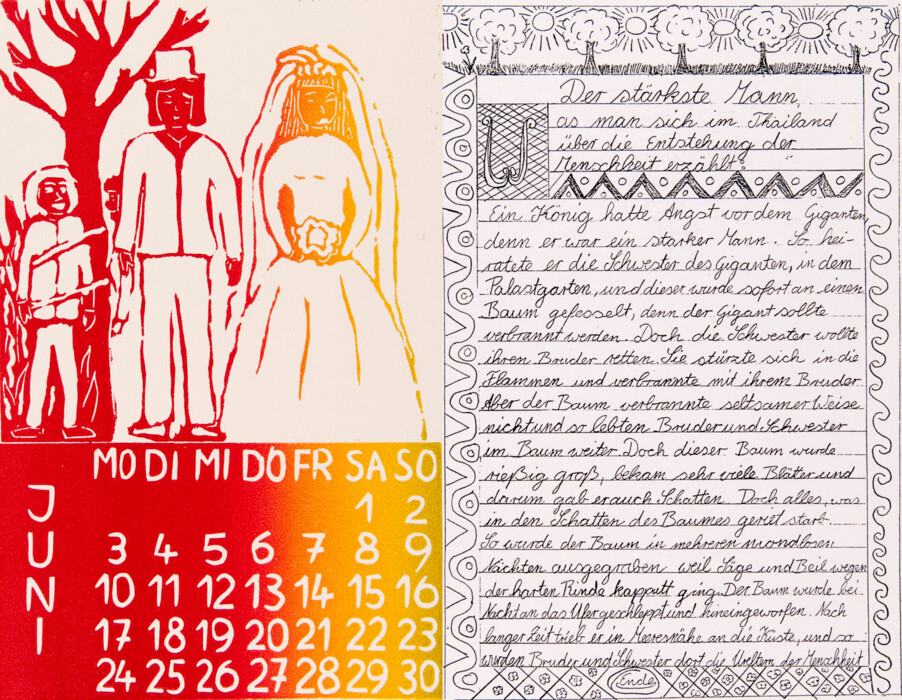 MO DI MI DO FR SA SO
JUNI
1 2
3 4 5 6 7 8 9
10 11 12 13 14 15 16
17 18 19 20 21 22 23
24 25 26 27 28 29 30
Der stärkste Mann,
Was man sich im Thailand
über die Entstehung der
Menschheit erzählt.
Ein König hatte Angst vor dem Giganten,
denn er war ein starker Mann. So hei-
ratete er die Schwester des Giganten, in dem
Palastgarten, und dieser wurde sofort an einen
Baum gefesselt, denn der Gigant sollte
verbrannt werden. Doch die Schwester wollte
ihren Bruder retten. Sie stürzte sich in die
Flammen und verbrannte mit ihrem Bruder.
Aber der Baum verbrannte seltsamer Weise
nicht und so lebten Bruder und Schwester
im Baum weiter. Doch dieser Baum wurde
rießig groß, bekam sehr viele Blätter und
darum gab er auch Schatten. Doch alles, was
in den Schatten des Baumes geriet starb.
So wurde der Baum in mehreren mondlosen
Nächten ausgegraben weil Säge und Beil wegen
der harten Rinde kapputt ging. Der Baum wurde bei
Nacht an das Ufer geschleppt und hineingeworfen. Nach
langer Zeit trieb er in Meeresnähe an die Küste, und so
wurden Bruder und Schwester dort die Ureltern der Menschheit
Ende